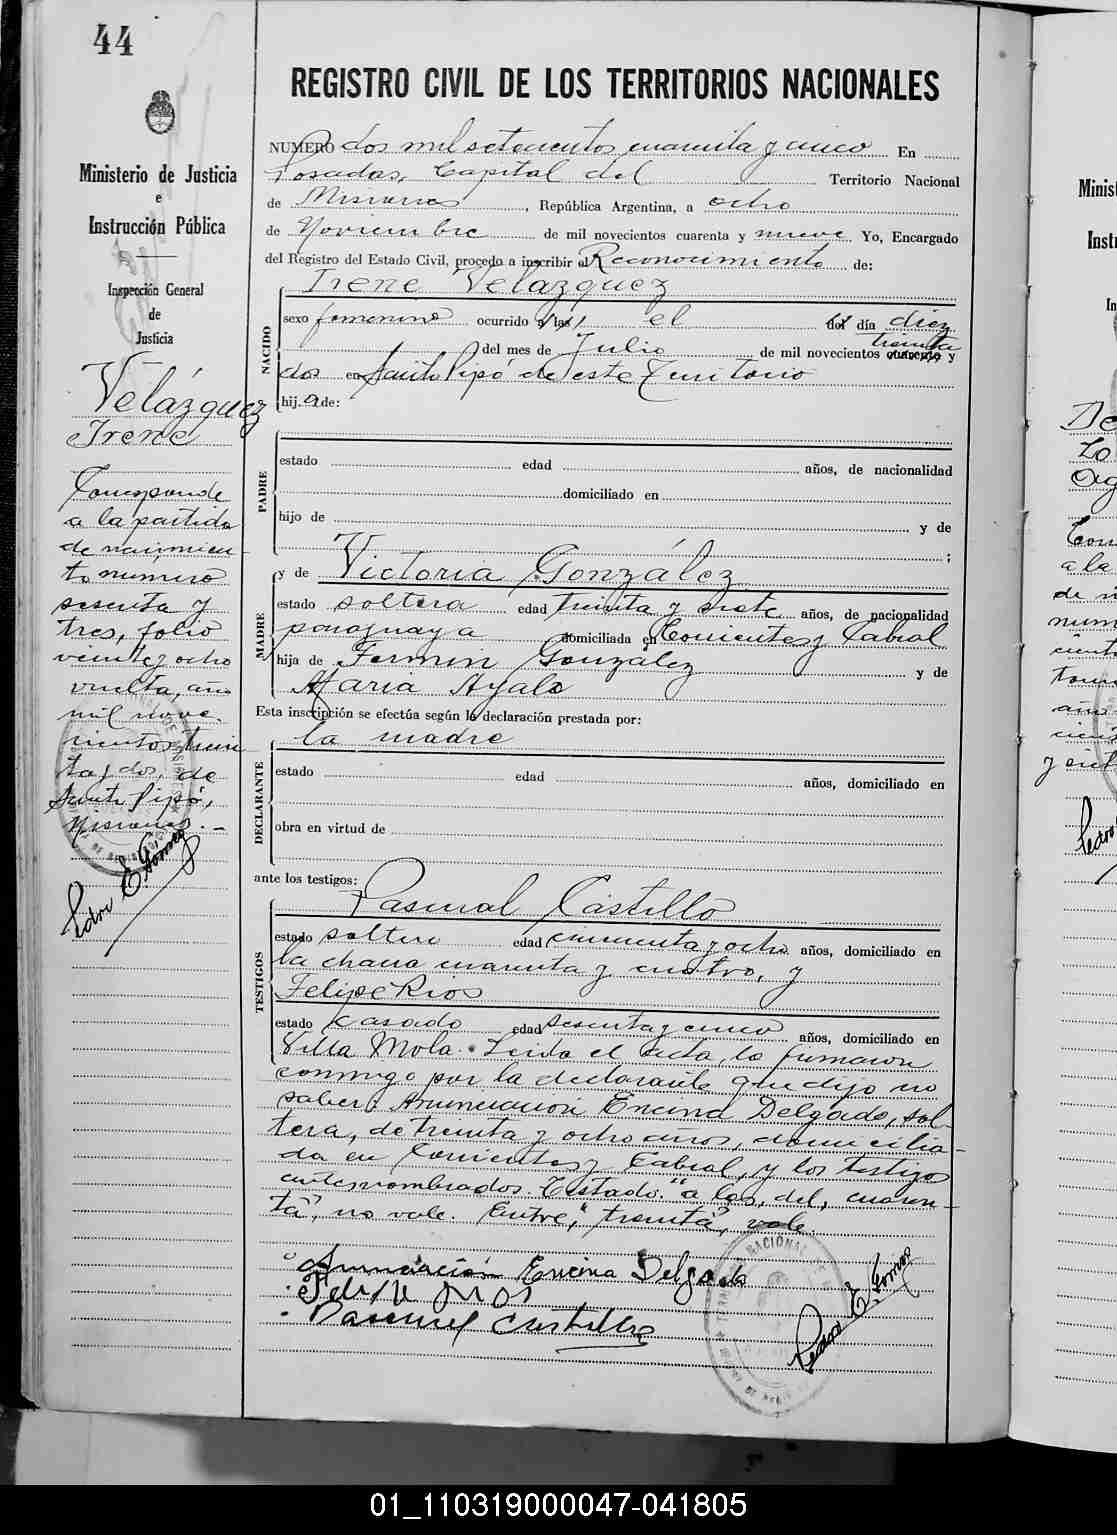 44
Ministerio de Justicia
e
Instrucción Pública
Inspección General
de
Justicia
Velázquez
Irene
Corresponde
a la partida
de nacimien-
to número
sesenta y
tres, folio
veinte y ocho
vuelta, año
mil nove-
cientos trein
ta y dos, de
Santo Pipó,
Misiones.-
Pedro E. Gómez
REGISTRO CIVIL DE LOS TERRITORIOS NACIONALES
NUMERO dos mil setecientos cuarenta y cinco En
Posadas, Capital del Territorio Nacional
de Misiones, República Argentina, a ocho
de Noviembre de mil novecientos cuarenta y nueve Yo, Encargado
del Registro del Estado Civil, procedo a inscribir el Reconocimiento de:
Irene Velázquez
NACIDO
sexo femenino ocurrido a las el del día diez
treinta
del mes de Julio de mil novecientos cuarenta y
dos en Santo Pipó de este Territorio
hij a de:
PADRE
estado edad años, de nacionalidad
domiciliado en
hijo de y de
;
y de Victoria González
MADRE
estado soltera edad treinta y siete años, de nacionalidad
paraguaya domiciliada en Corrientes y Cabral
hija de Fermin González y de
Maria Ayala
Esta inscripción se efectúa según la declaración prestada por:
la madre
DECLARANTE
estado edad años, domiciliado en
obra en virtud de
ante los testigos:
Pascual Castillo
TESTIGOS
estado soltero edad cincuenta y ocho años, domiciliado en
la chacra cuarenta y cuatro, y
Felipe Rios
estado casado edad sesenta y cinco años, domiciliado en
Villa Mola. Leida el acta, la firmaron
conmigo por la declarante que dijo no
saber Anunciación Encina Delgado, sol-
tera, de treinta y ocho años, domicilia-
da en Corrientes y Cabral, y los testigos
antes nombrados. Testado: "a las, del, cuaren-
ta", no vale. Entre, "treinta", vale.
Anunciación Encina Delgado
Felipe Rios
Pascual Castillo
Pedro E. Gómez
Minis
Instr
In
01_110319000047-041805